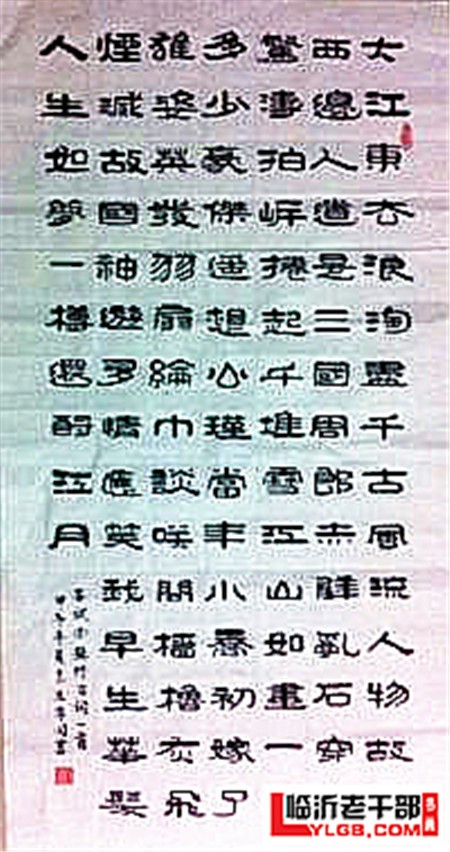 大江東去浪淘盡千古風流人物故
西邊人道是三國周郎赤壁亂石穿
驚濤拍岸捲起千堆雪江山如畫一
多少豪傑遙想公瑾當年小喬初嫁了
雄姿英發羽扇綸巾談咲間檣櫓灰飛
煙滅故國神遊多情應笑我早生華髮
人生如夢一樽還酹江月
临沂老干部
LYLGB.COM